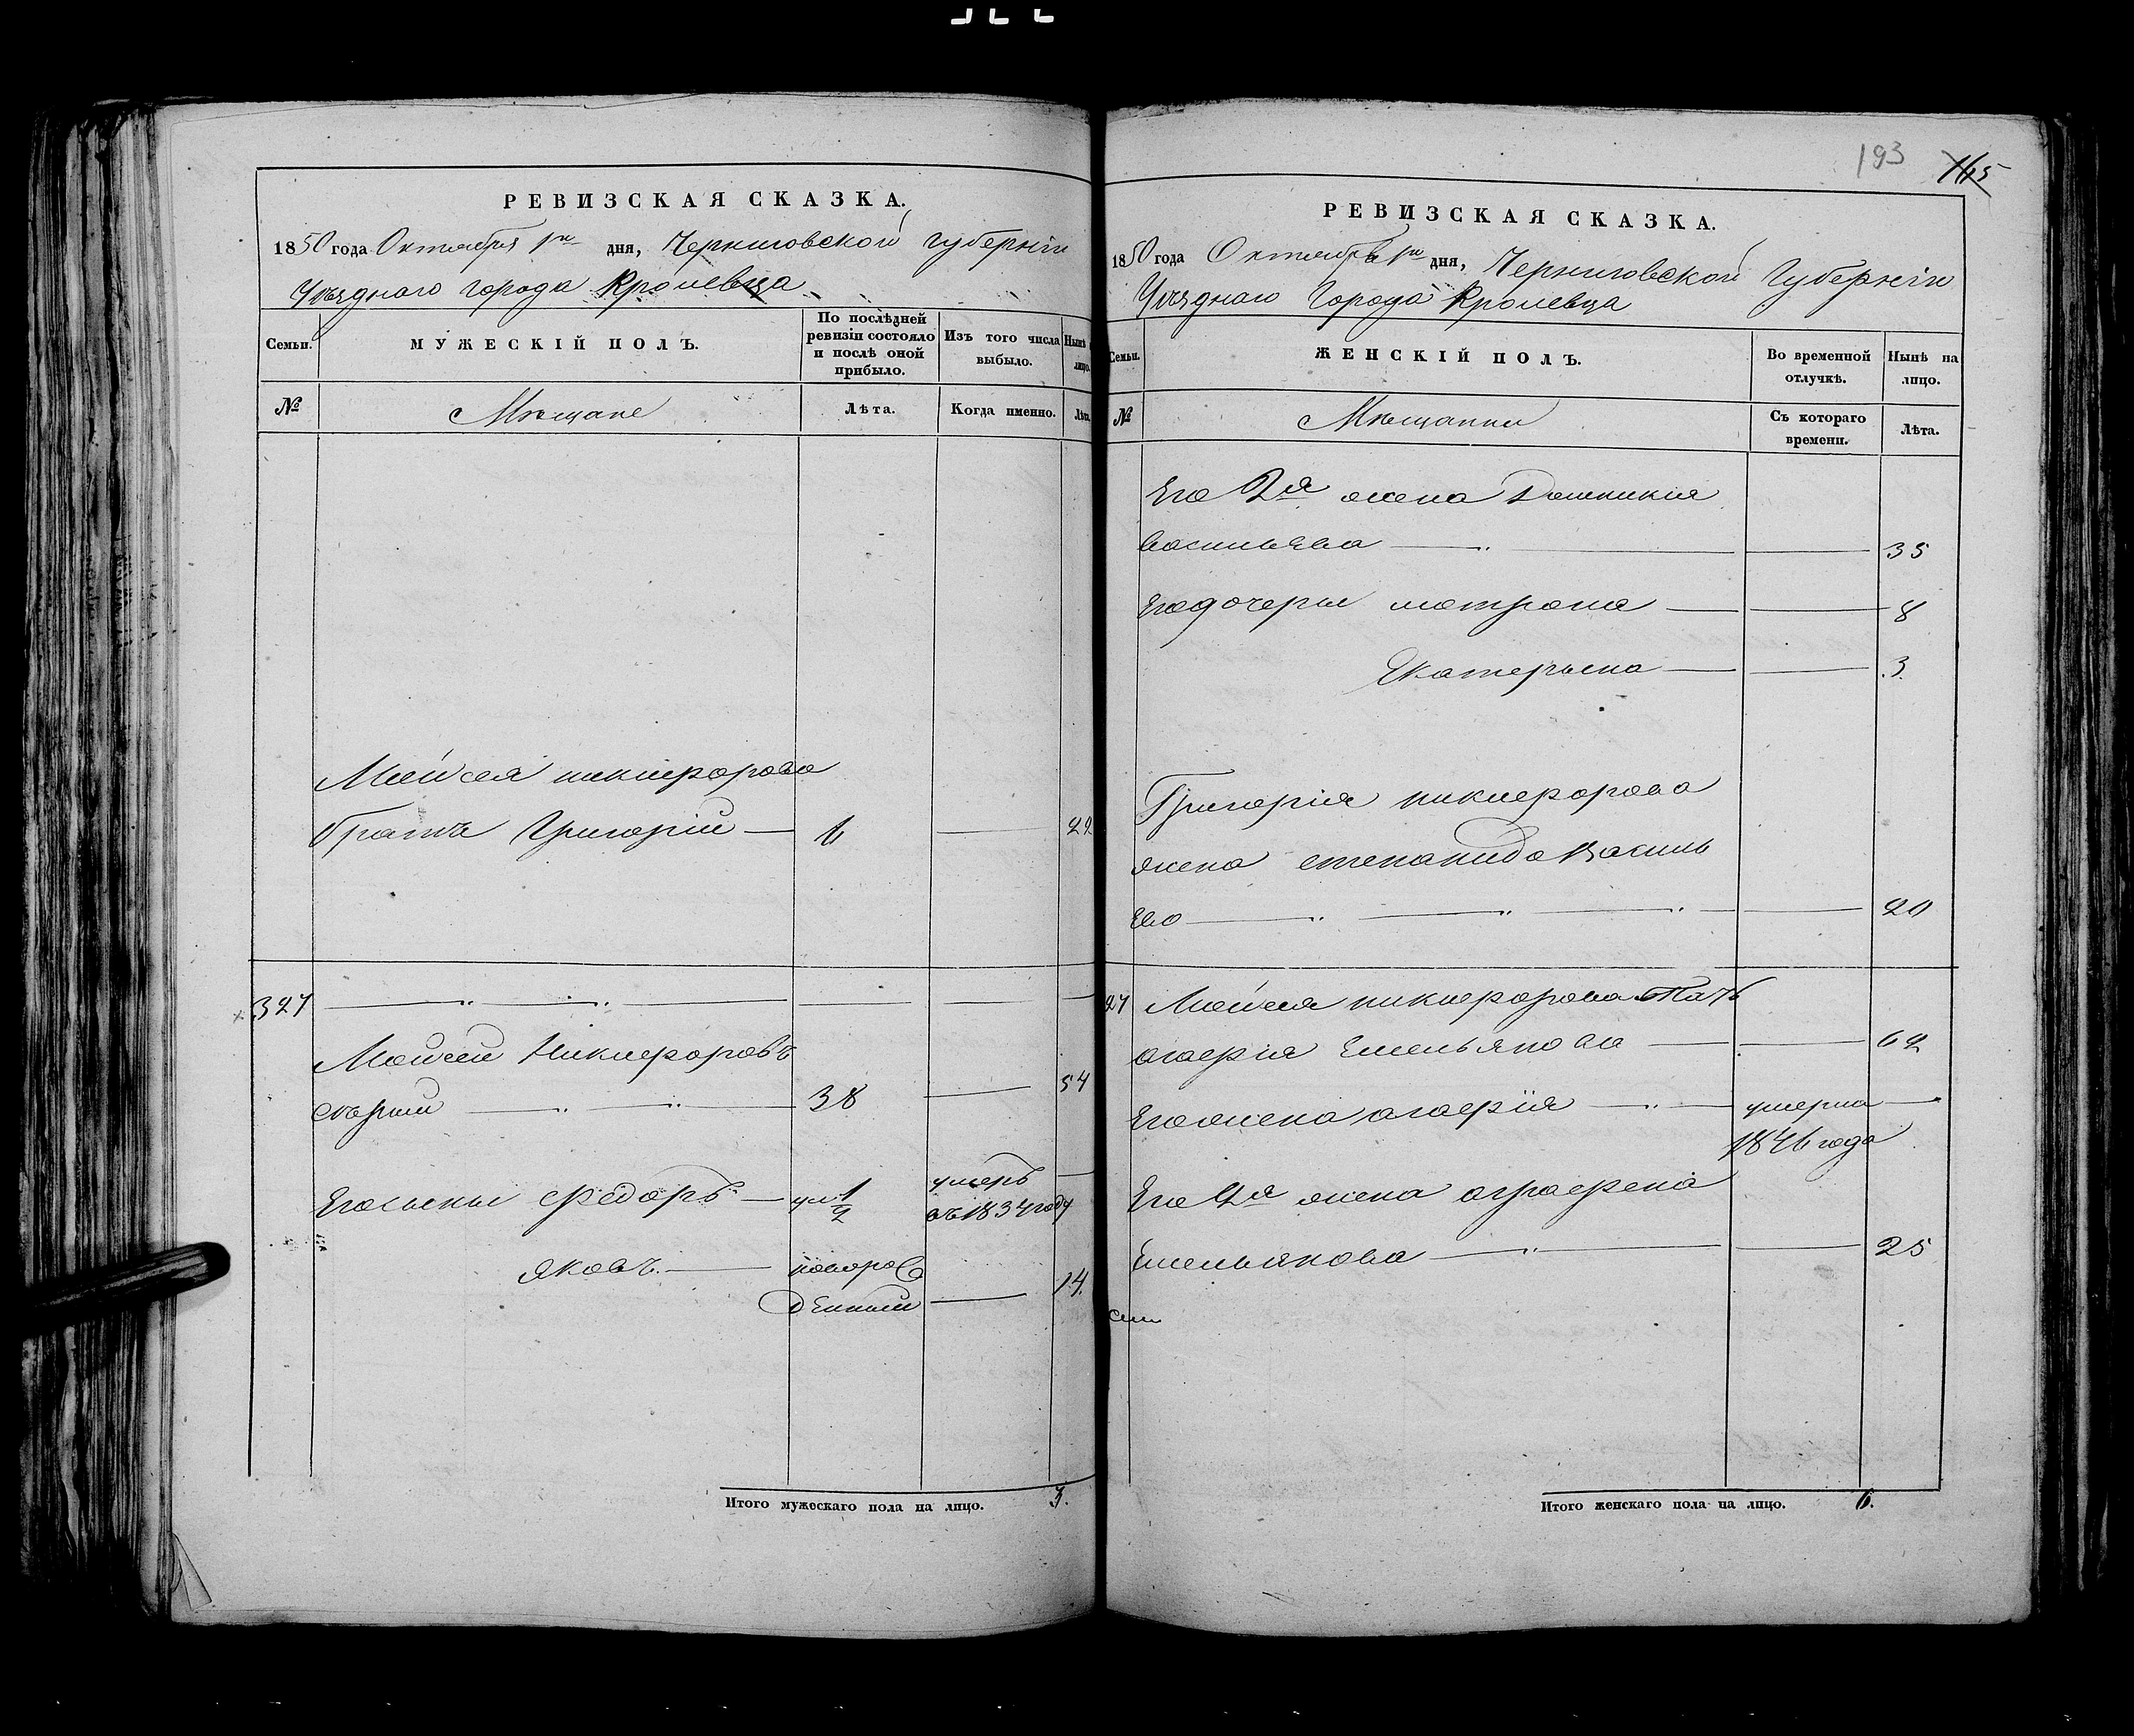 РЕВИЗСКАЯ СКАЗКА.
1850 года Октября 1го дня, Черниговской губерніи
Уѣзднаго города Кролевца
Семьи.
МУЖЕСКІЙ ПОЛЪ.
По послѣдней
ревизіи состояло
и послѣ оной
прибыло.
Изъ того числа
выбыло.
Нынѣ
лицо.
№
Мѣщане
Лѣта.
Когда именно.
Лѣта.
Моисея никифорова
братъ Григорій 6 22
327
Моисей Никифоровъ
38 54
Егосыны Федоръ ум 1/2 умеръ
въ 1834 году
яковъ новорож
денный 14.
Итого мужескаго пола на лицо. 3.
193
165
РЕВИЗСКАЯ СКАЗКА.
1850 года Октября 1го дня, Черниговской Губерніи
Уѣзднаго Города Кролевца
Семьи.
ЖЕНСКІЙ ПОЛЪ.
Во временной
отлучкѣ.
Нынѣ на
лицо.
№
Мѣщанки
Съ котораго
времени.
Лѣта.
Его 2я жена Домникия
васильева 35
Егодочери мотрона 8
Екатерына 3.
Григорія никифорова
жена степанида Василь
ева 20
27 Моисея никифорова Мать
агафія Емельянова 62
Егожена агафія умерла
1846 года
Его 2я жена аграфена
Емельянова 25
Итого женскаго пола на лицо. 6.